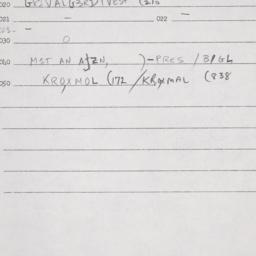 020 GK2VALG3RDIVEST (2/5
021 — 022 —
023 —
030 O
040 MST AN AZN, )-PRES / B/GL
050 KROXMOL (172 / KROXMAL (838